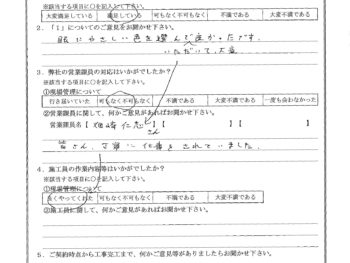 ※該当する項目に○を記入して下さい。
大変満足している 満足している 可もなく不可もなく 不満である 大変不満である
2．「1」についてのご意見をお聞かせ下さい。
眼にやさしい色を選んで
いただいて、大変
良かったです。
3．弊社の営業課員の対応はいかがでしたか？
※該当する項目に○を記入して下さい。
①現場管理について
行き届いていた 可もなく不可もなく 不満である 大変不満である 一度も会わなかった
②営業課員に関して、何かご意見があればお聞かせ下さい。
営業課員名【 畑崎 仁志 】【 】【 】
さん
皆さん、丁寧に仕事をされていました。
4．施工員の作業内容等はいかがでしたか？
※該当する項目に○を記入して下さい。
①現場管理について
良くやってくれた 可もなく不可もなく 不満である 大変不満である
②施工員に関して、何かご意見があればお聞かせ下さい。
5．ご契約時点から工事完工まで、何かご意見等がありましたらお聞かせ下さい。